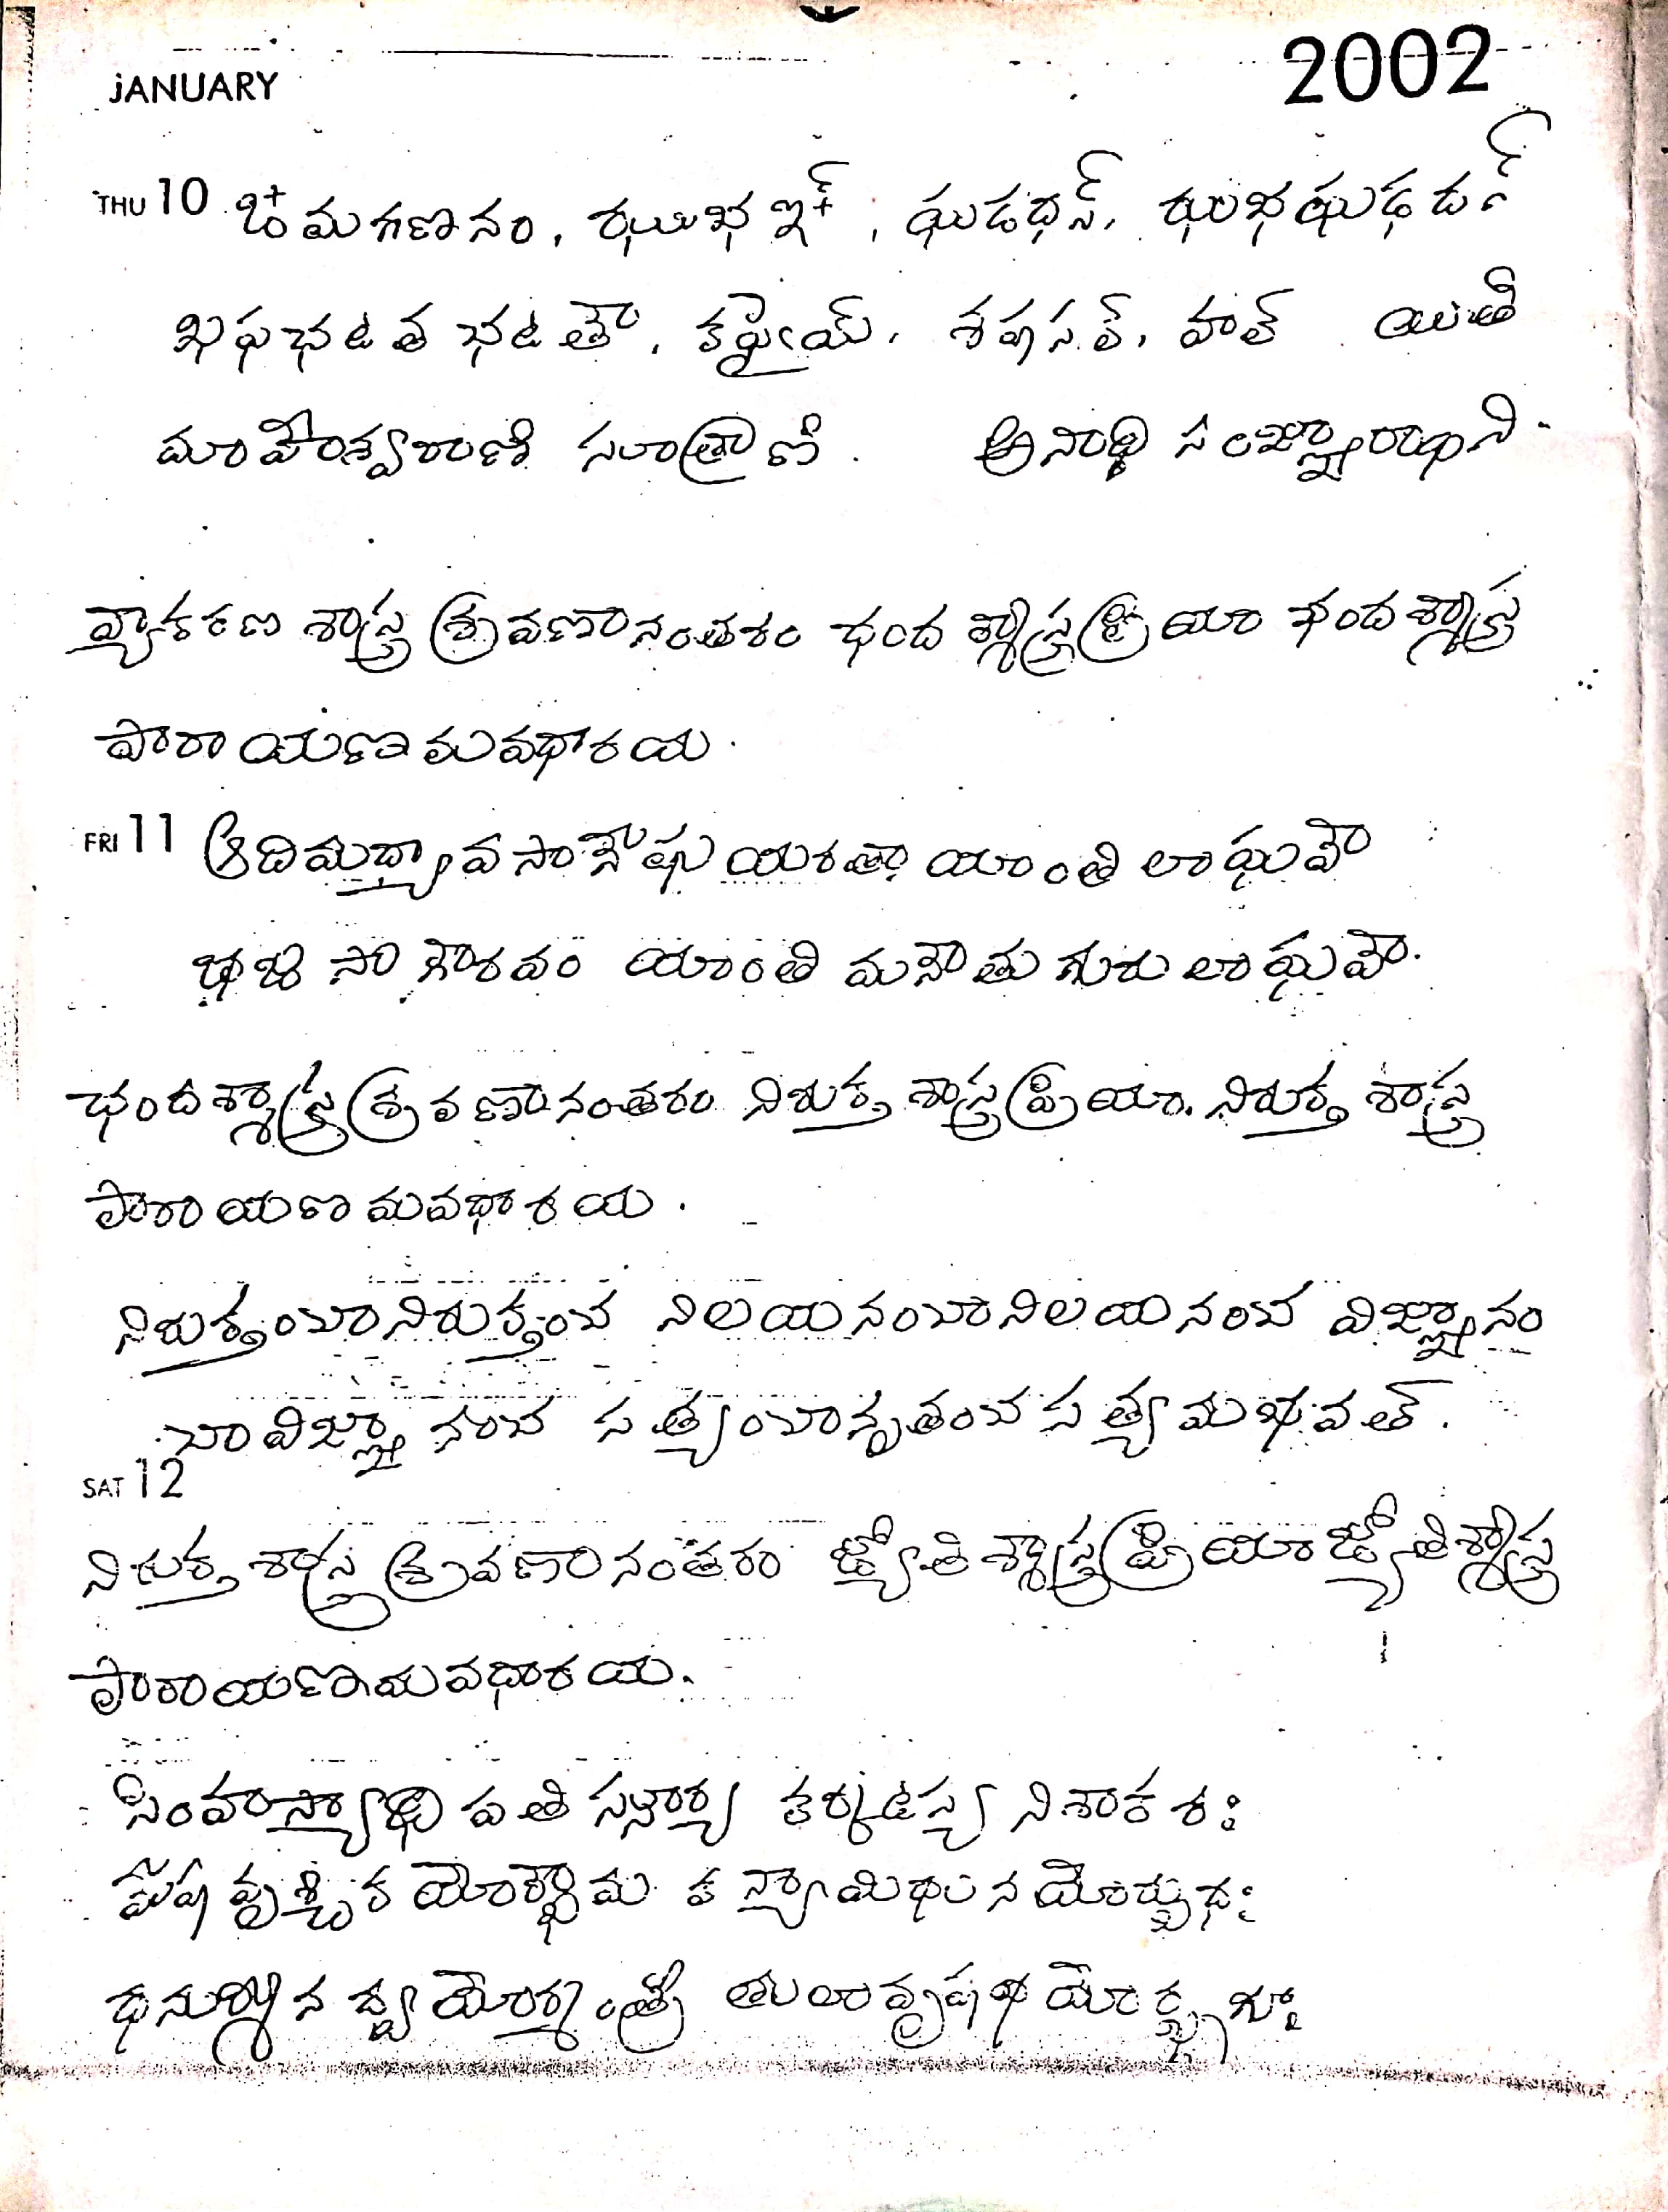 JANUARY 2002
THU 10 ఙమగణనం, ఝుభఞ్, ఘుడధస్, ఝుభఘుఢదస్
ఖఫఛటత ఛటతౌ, కఫైయ్, శషసర్, హల్ యితి
మాహేశ్వరాణి సూత్రాణి. అనాధి సంజ్ఞారాథిని.
వ్యాకరణ శాస్త్ర శ్రవణానంతరం ఛంద శ్శాస్త్రప్రియా ఛందశ్శాస్త్ర
పారాయణమవధారయ.
FRI 11 ఆదిమధ్యావసానేషు యరతా యాంతి లాఘవౌ
భజసా గౌరవం యాంతి మనౌతు గురులాఘవౌ.
ఛందశ్శాస్త్ర శ్రవణానంతరం నిరుక్త శాస్త్రప్రియా. నిరుక్త శాస్త్ర
పారాయణ మవధారయ.
నిరుక్తంచానిరుక్తంచ నిలయనంచానిలయనంచ విజ్ఞానం
చావిజ్ఞానంచ సత్యంచానృతంచ సత్యమభవత్.
SAT 12
నిరుక్త శాస్త్ర శ్రవణానంతరం జ్యోతిశ్శాస్త్రప్రియా జ్యోతిశ్శాస్త్ర
పారాయణమవధారయ.
సింహస్యాధిపతి సూర్య కర్కటస్య నిశాకరః
మేషవృశ్చికయోర్భౌమ కన్యామిథునయోర్బుధః
ధనుర్మీనద్వయోర్మంత్రీ తులావృషభయోర్భృగూః